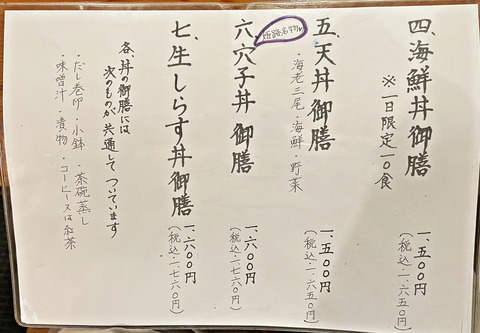 四、海鮮丼御膳
※一日限定一〇食
一、五〇〇円
(税込・一、六五〇円)
五、天丼御膳
・海老三尾・海鮮・野菜
一、五〇〇円
(税込・一、六五〇円)
姫路名物
六、穴子丼御膳
一、六〇〇円
(税込・一、七六〇円)
七、生しらす丼御膳
一、六〇〇円
(税込・一、七六〇円)
各丼の御膳には
次のものが共通してついています
・だし巻卵・小鉢・茶碗蒸し
・味噌汁・漬物・コーヒー又は紅茶